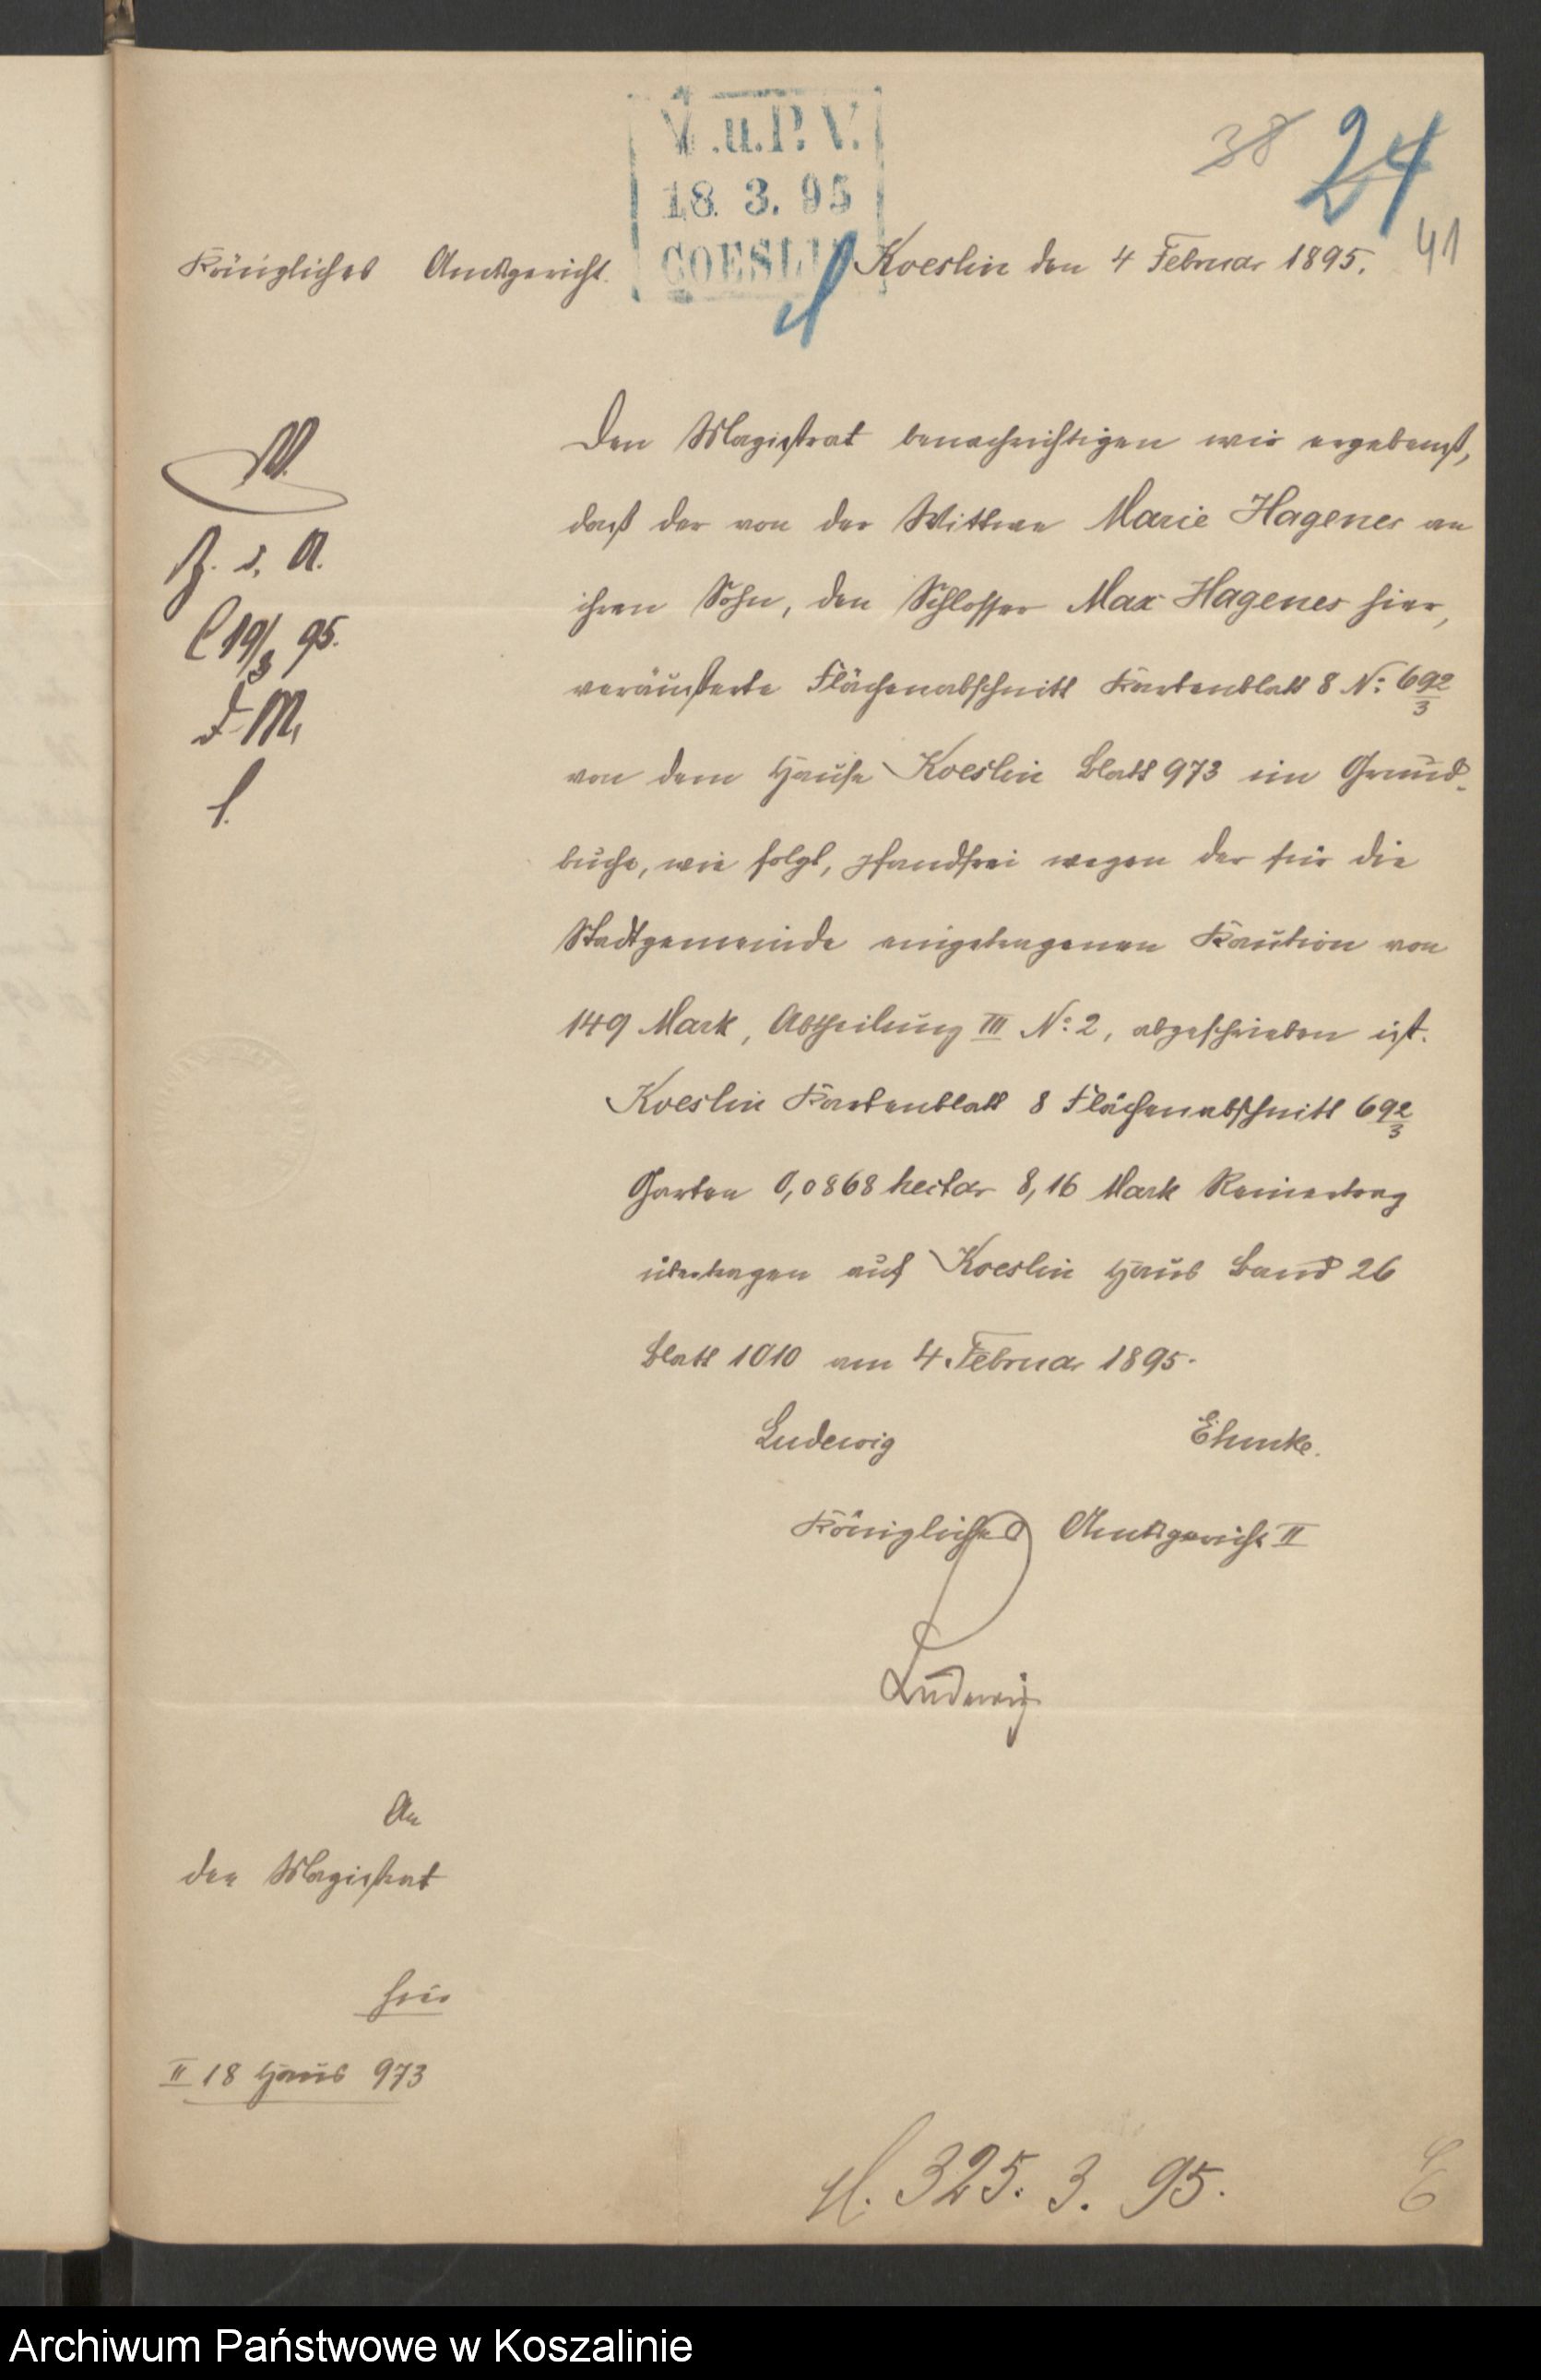 V.u.P.V.
18. 3. 95
COESLIN
38
24
41
Königliches Amtsgericht.
Koeslin den 4 Februar 1895.
Den Magistrat benachrichtigen wir ergebenst,
daß der von der Wittwe Marie Hagenes an
ihren Sohn, den Schlosser Max Hagenes hier,
veräußerte Flächenabschnitt Kartenblatt 8 No: 692/3
von dem Hause Koeslin Blatt 973 im Grund-
buche, wie folgt, pfandfrei wegen der für die
Stadtgemeinde eingetragenen Kaution von
149 Mark, Abtheilung III No: 2, abgeschrieben ist.
Koeslin Kartenblatt 8 Flächenabschnitt 692/3
Garten 0,0868 hectar 8,16 Mark Reinertrag
übertragen auf Koeslin Haus Band 26
Blatt 1010 am 4. Februar 1895.
Ludewig Ehmke.
Königliches Amtsgericht II
Ludewig
Z. d. A.
C 19/3 95.
D. M.
An
den Magistrat
hier
II 18 Haus 973
325. 3. 95.
Archiwum Państwowe w Koszalinie